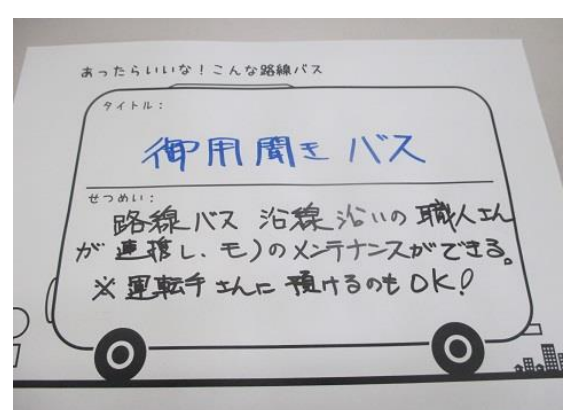 あったらいいな！こんな路線バス
タイトル：
御用聞きバス
せつめい：
路線バス 沿線沿いの職人さん
が連携し、モノのメンテナンスができる。
※運転手さんに預けるのもOK！